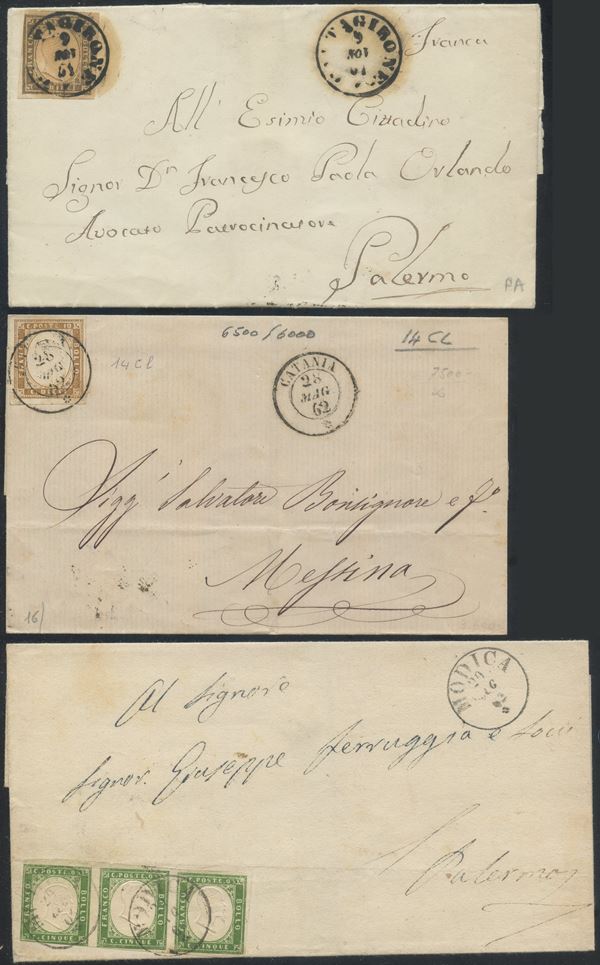 TAGIRONE
9
NOV
61
TAGIRONE
9
NOV
61
Franca
All' Esimio Cittadino
Signor Dn Francesco Paola Orlando
Avocato Patrocinatore
Palermo
PA
6500/6000
14 CL
C. POSTE 10
BOLLO
28
MAG
62
14 Cl
CATANIA
28
MAG
62
7500
Sigg.ri Salvatore Bonsignore e f.o
Messina
16)
MODICA
Al Signore
Signor. Giuseppe Ferruggia e Socii
Palermo
FRANCO
C. POSTE. 0
BOLLO
C. CINQUE
FRANCO
C. POSTE. 0
BOLLO
C. CINQUE
FRANCO
C. POSTE. 0
BOLLO
C. CINQUE